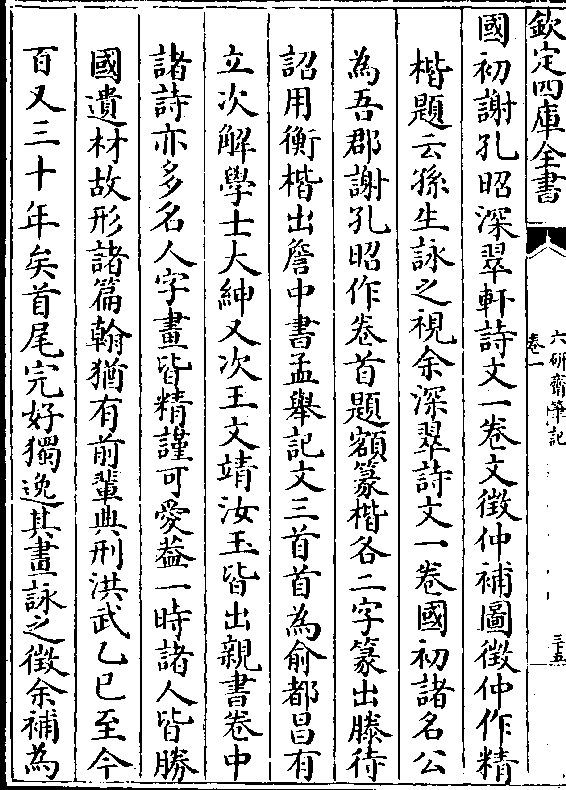 欽定四庫全書
六研齋筆記
卷一
三十五
國初謝孔昭深翠軒詩文一卷文徵仲補圖徵仲作精
楷題云孫生詠之視余深翠詩文一卷國初諸名公
為吾郡謝孔昭作卷首題額篆楷各二字篆出滕待
詔用衡楷出詹中書孟舉記文三首首為俞都昌有
立次解學士大紳又次王文靖汝玉皆出親書卷中
諸詩亦多名人字畫皆精謹可愛葢一時諸人皆勝
國遺材故形諸篇翰猶有前輩典刑洪武乙巳至今
百又三十年矣首尾完好獨逸其畫詠之徵余補為